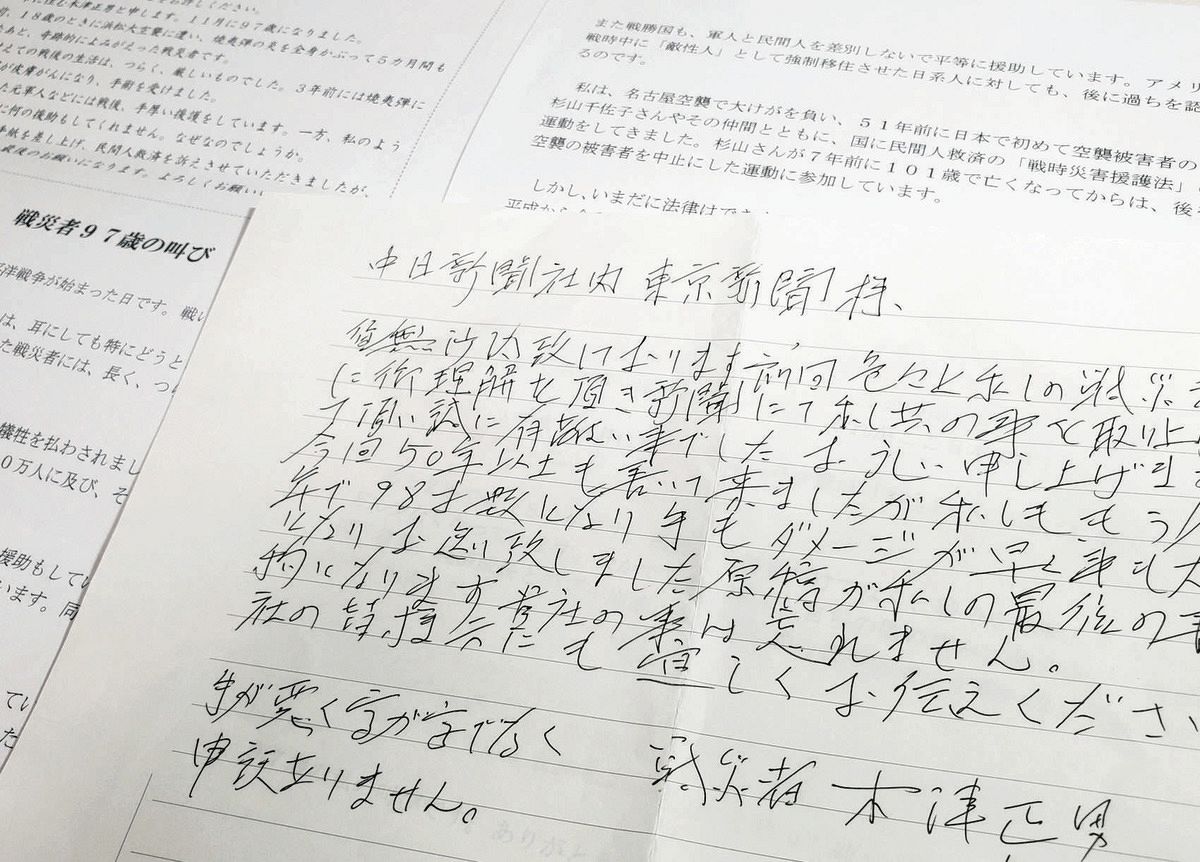 に住む木津正男と申します。11月に97歳になりました。
18歳のときに浜松大空襲に遭い、焼夷弾の炎を全身かぶって5カ月間も
たあと、奇跡的によみがえった戦災者です。
えての戦後の生活は、つらく、厳しいものでした。3年前には焼夷弾に
が皮膚がんになり、手術を受けました。
た元軍人などには戦後、手厚い援護をしています。一方、私のよう
に何の援助もしてくれません。なぜなのでしょうか。
手紙を差し上げ、民間人救済を訴えさせていただきましたが、
最後のお願いになります。よろしくお願い
戦災者97歳の叫び
洋戦争が始まった日です。戦い
は、耳にしても特にどうと
た戦災者には、長く、つ
犠牲を払わされまし
0万人に及び、そ
援助もしてい
います。同
てい
た
また戦勝国も、軍人と民間人を差別しないで平等に援助しています。アメリ
戦時中に「敵性人」として強制移住させた日系人に対しても、後に過ちを認
るのです。
私は、名古屋空襲で大けがを負い、51年前に日本で初めて空襲被害者の
杉山千佐子さんやその仲間とともに、国に民間人救済の「戦時災害援護法」
運動をしてきました。杉山さんが7年前に101歳で亡くなってからは、後
空襲の被害者を中止にした運動に参加しています。
しかし、いまだに法律はでき
平成から
中日新聞社内 東京新聞様、
沙汰致しております前回色々と私しの戦災
に御理解を頂き新聞にて私し共の事を取り上
て頂い誠に有難い事でした お 申し上げます
今回50年以上も書いて来ましたが私しももう
年で98才になり手もダメージが早く事も
になりお送り致しました原稿が私しの最後の
的になります貴社の事は忘れません。
社の皆様方にも宜しくお伝えくださ
手が悪く字が字でなく
申訳ありません。
戦災者 木津正男
ありが